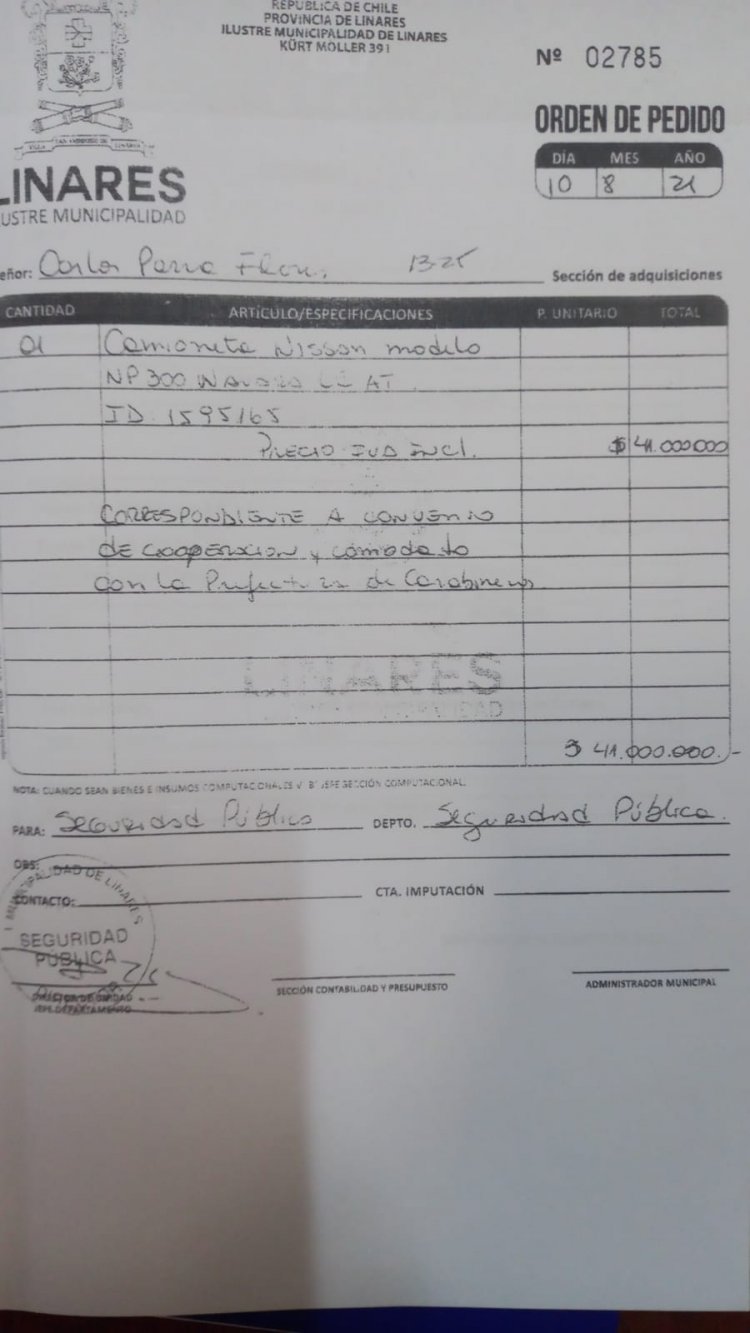 REPÚBLICA DE CHILE
PROVINCIA DE LINARES
ILUSTRE MUNICIPALIDAD DE LINARES
KÜRT MOLLER 391
Nº 02785
ORDEN DE PEDIDO
DÍA MES AÑO
10 8 21
LINARES
ILUSTRE MUNICIPALIDAD
eñor: Carlos Parra Flores 13-25 Sección de adquisiciones
CANTIDAD ARTÍCULO/ESPECIFICACIONES P. UNITARIO TOTAL
01 Camioneta Nissan modelo
NP 300 Navara LE AT
ID 1595165
PRECIO IVA INCL. $ 41.000.000
CORRESPONDIENTE A CONVENIO
DE COOPERACION y comodato
con la Prefectura de Carabineros
LINARES
$ 41.000.000.-
NOTA: CUANDO SEAN BIENES E INSUMOS COMPUTACIONALES Vº Bº JEFE SECCIÓN COMPUTACIONAL.
PARA: Seguridad Pública DEPTO. Seguridad Pública.
OBS:
CONTACTO: CTA. IMPUTACIÓN
MUNICIPALIDAD DE LINARES
SEGURIDAD
PÚBLICA
JEFE DEPARTAMENTO
SECCIÓN CONTABILIDAD Y PRESUPUESTO
ADMINISTRADOR MUNICIPAL